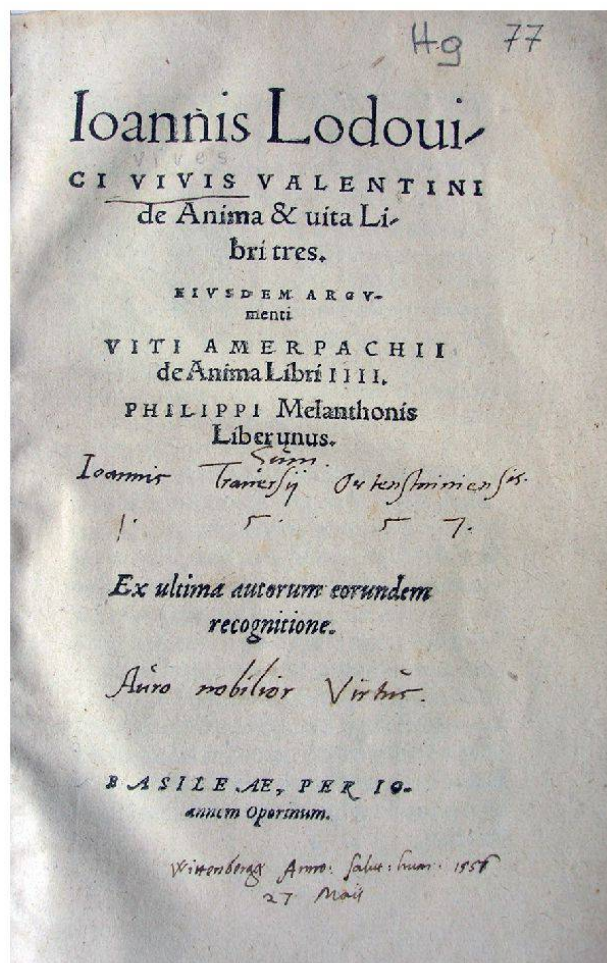 Hg 77
Ioannis Lodoui-
vives
CI VIVIS VALENTINI
de Anima & uita Li-
bri tres.
EIVSDEM ARGV-
menti
VITI AMERPACHII
de Anima Libri IIII.
PHILIPPI Melanthonis
Liber unus.
Sum.
Ioannis Traversij
1. 5. 5. 7.
Ex ultima autorum eorundem
recognitione.
Auro nobilior Virtus.
BASILEAE, PER IO-
annem Oporinum.
Wittenbergæ Anno. salut: hum.
27 Maij